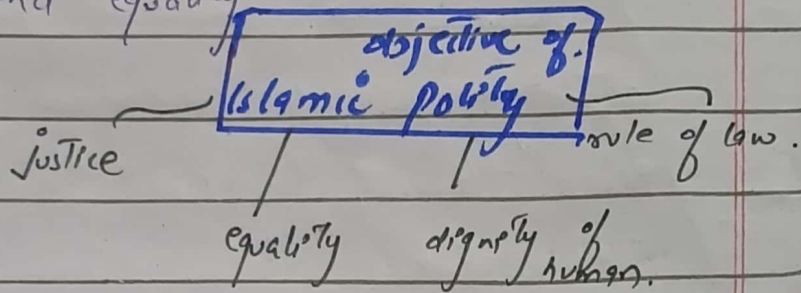 equality
objective of
Islamic Polity
justice
rule of law.
equality
dignity of
human.